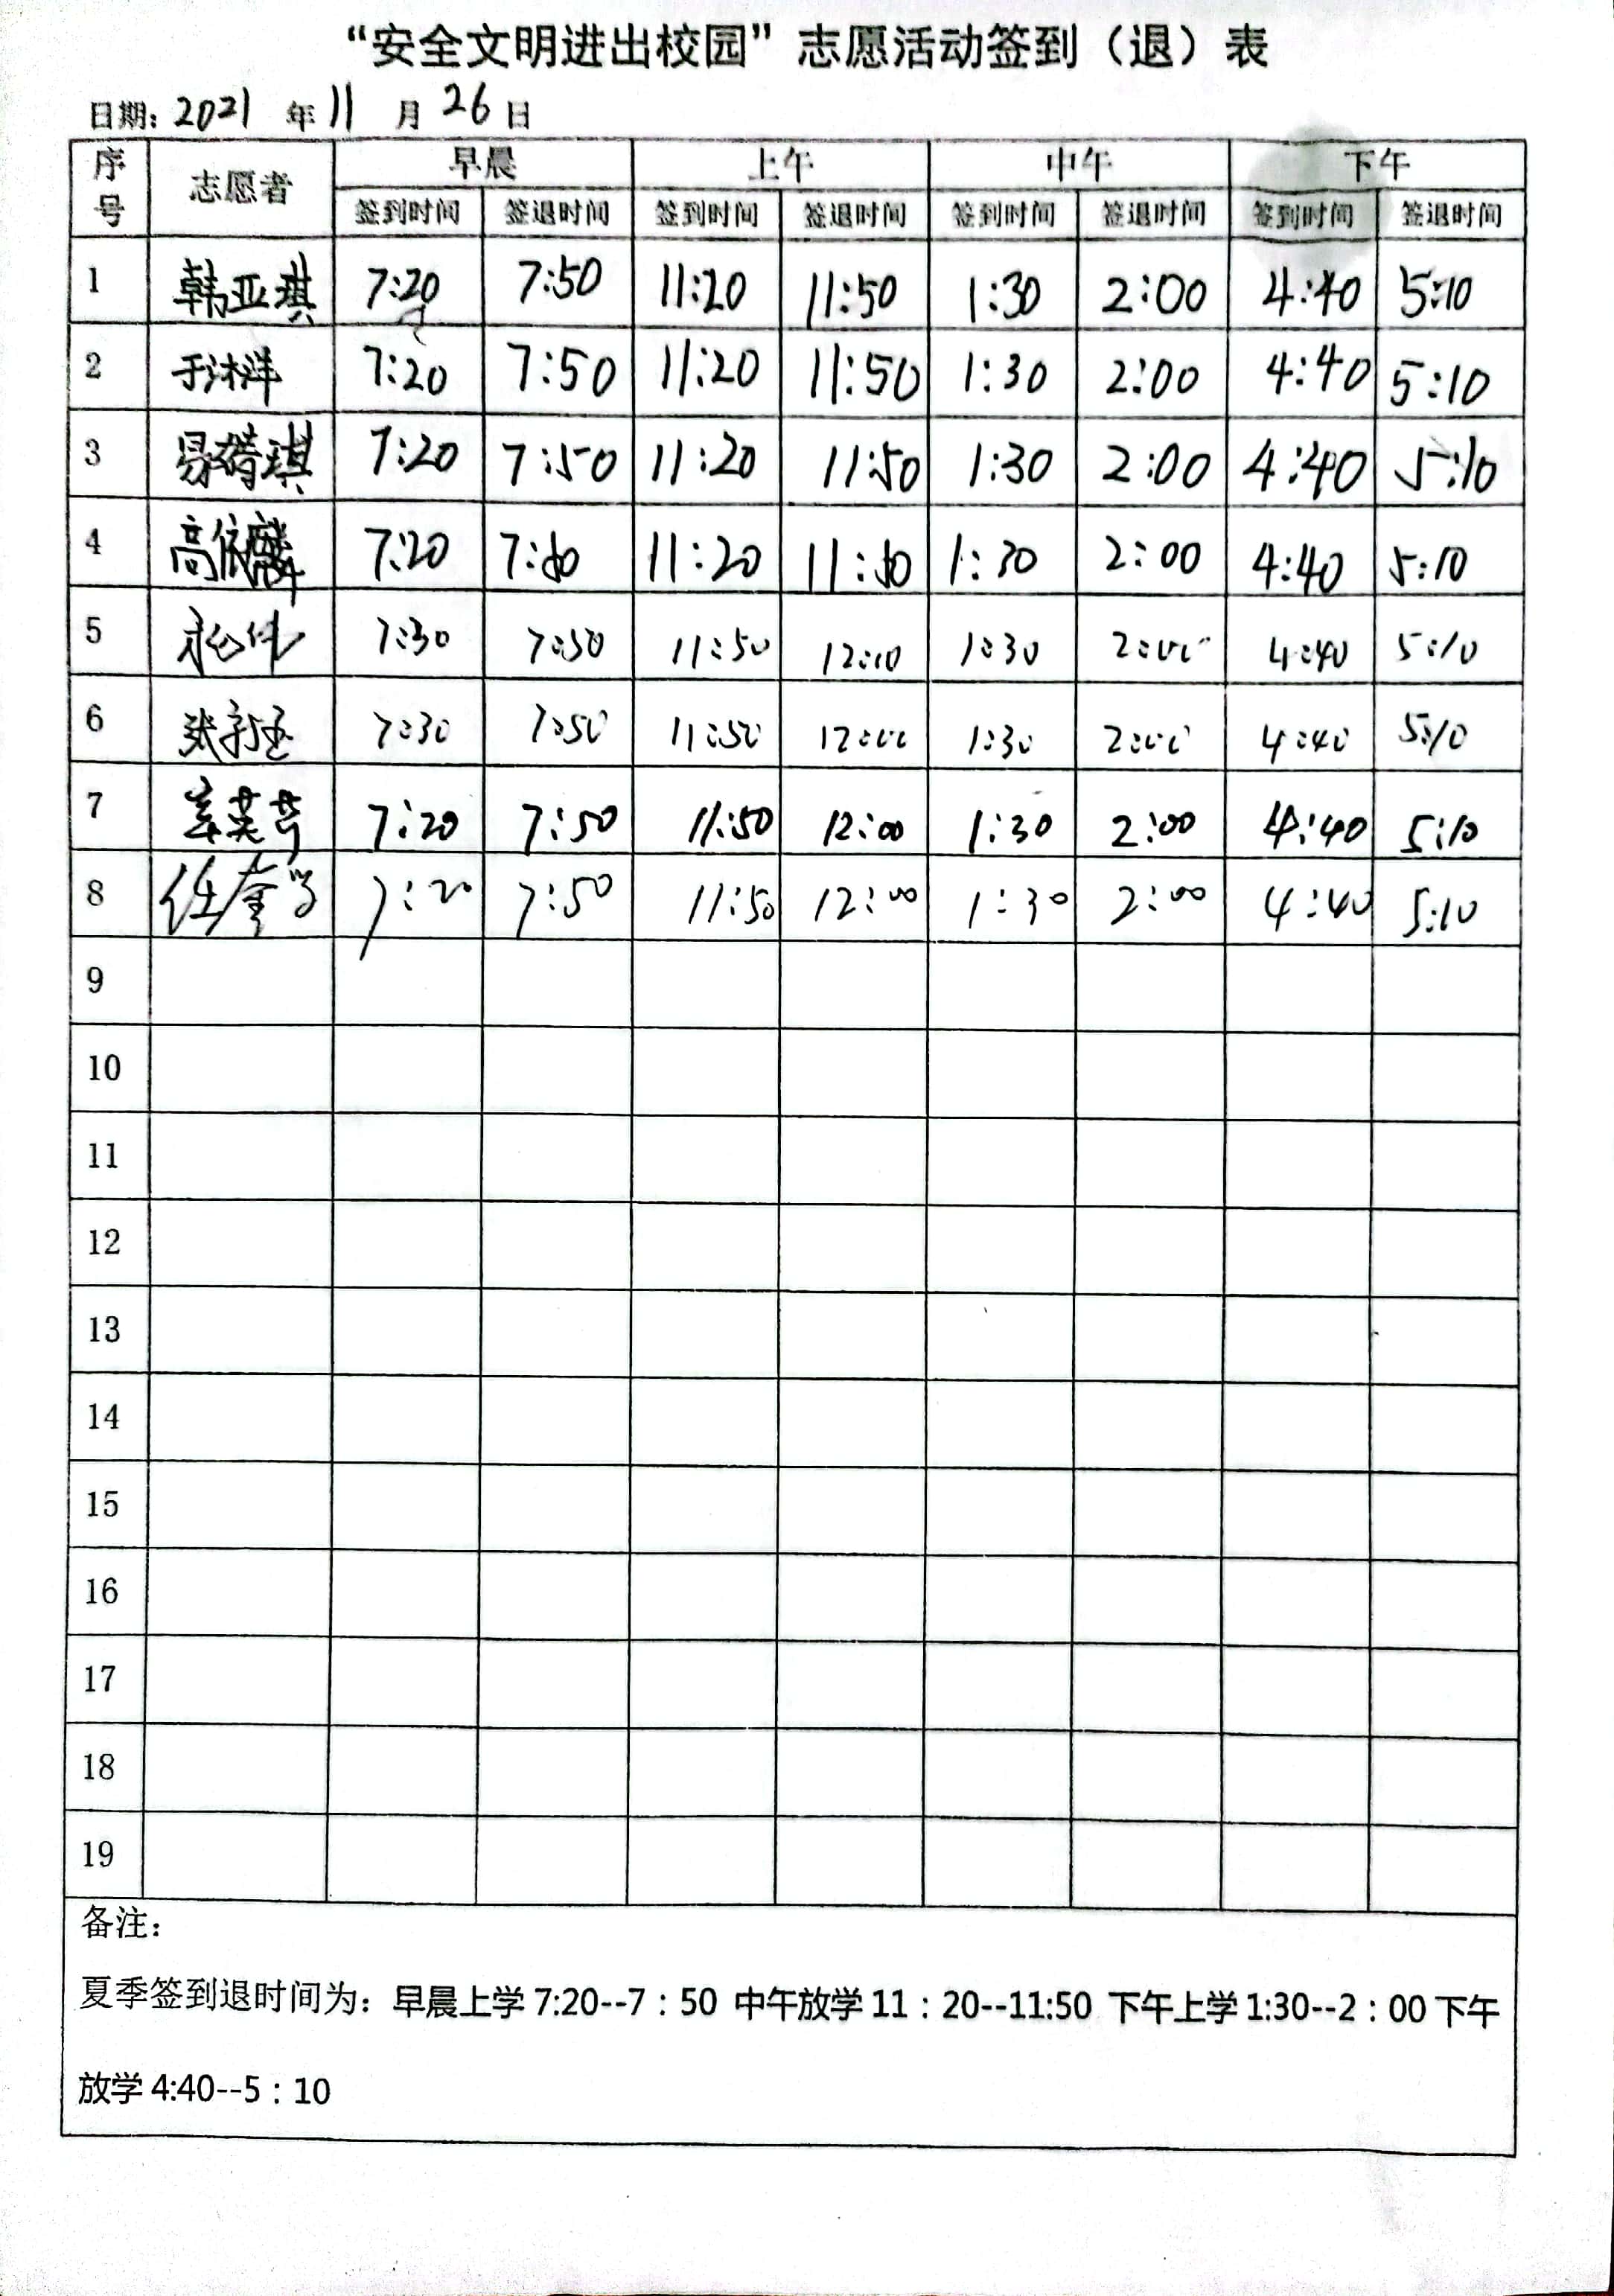 “安全文明进出校园”志愿活动签到（退）表
日期：2021 年 11 月 26 日
序号 志愿者 早晨 上午 中午 下午
签到时间 签退时间 签到时间 签退时间 签到时间 签退时间 签到时间 签退时间
1 韩亚琪 7:20 7:50 11:20 11:50 1:30 2:00 4:40 5:10
2 于沐洋 7:20 7:50 11:20 11:50 1:30 2:00 4:40 5:10
3 7:20 7:50 11:20 11:50 1:30 2:00 4:40 5:10
4 高依麟 7:20 7:50 11:20 11:50 1:30 2:00 4:40 5:10
5 7:30 7:50 11:50 12:00 1:30 2:00 4:40 5:10
6 7:30 7:50 11:50 12:00 1:30 2:00 4:40 5:10
7 7:20 7:50 11:50 12:00 1:30 2:00 4:40 5:10
8 任奎学 7:20 7:50 11:50 12:00 1:30 2:00 4:40 5:10
9
10
11
12
13
14
15
16
17
18
19
备注：
夏季签到退时间为：早晨上学 7:20--7：50 中午放学 11：20--11:50 下午上学 1:30--2：00 下午
放学 4:40--5：10